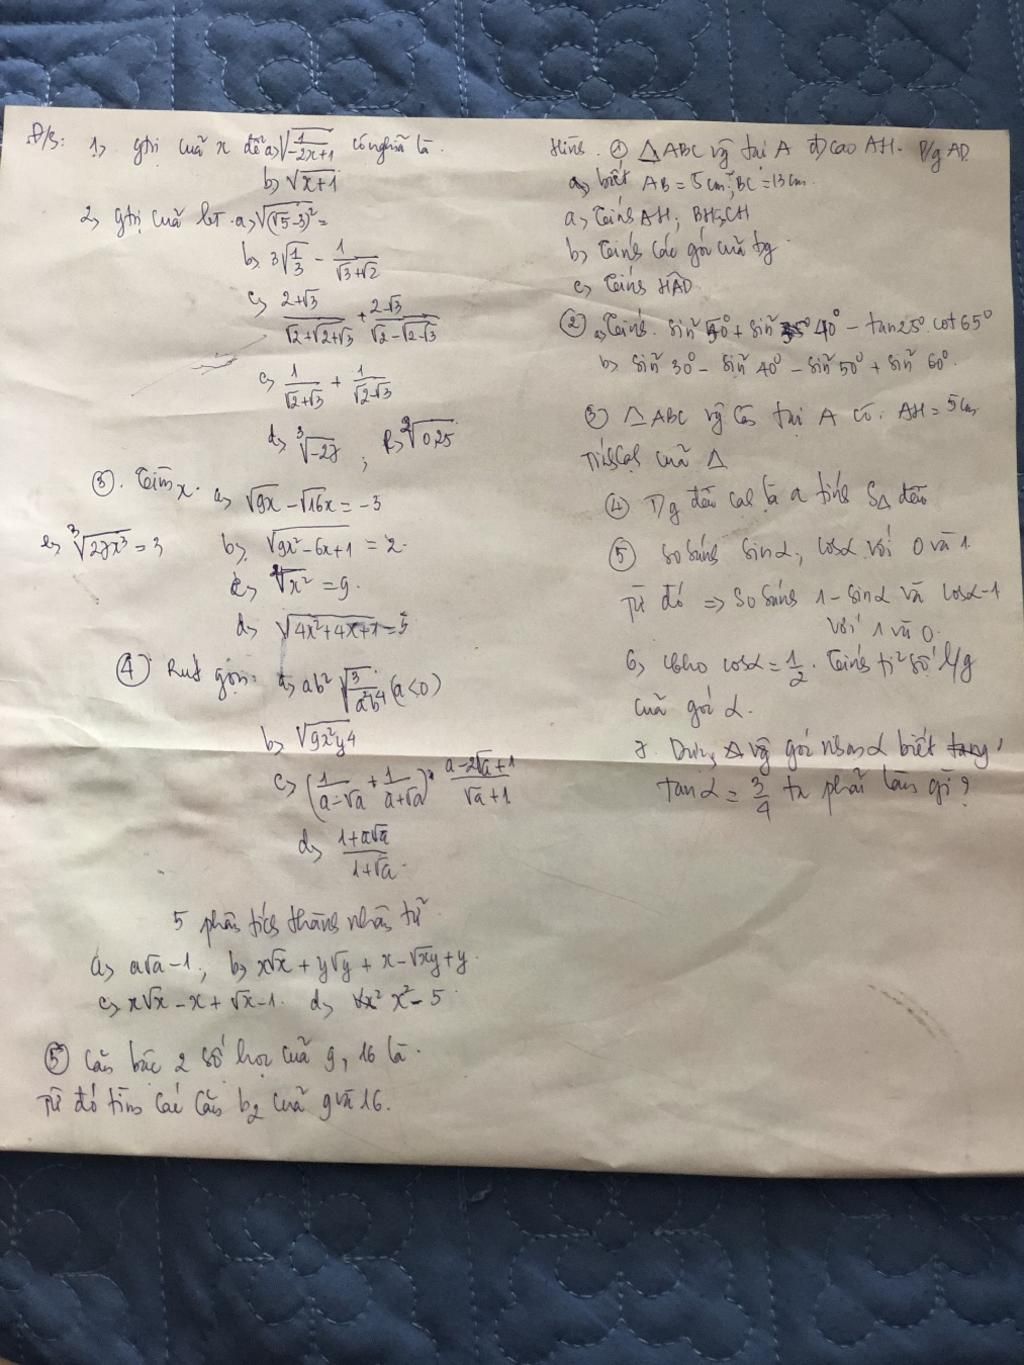 Đ/S: 1, gtrị của x để a, √(1/(-2x+1)) có nghĩa là.
b, √(x+1)
2, gtrị của bt. a, √((√5-3)²) =
b, 3√(1/3) - 1/(√3+√2)
c, (2+√3)/(√2+√(2+√3)) + (2-√3)/(√2-√(2-√3))
c, 1/(√2+√3) + 1/(√2-√3)
d, ∛-27 ; √0,25
③. Tìm x. a, √9x - √16x = -3
e, ∛(27x³) = 3
b, √(9x²-6x+1) = 2
c, √x² = 9.
d, √(4x²+4x+1) = 5
④ Rút gọn: a, ab² √(3/(a²b⁴)) (a<0)
b, √(9x²y⁴)
c, (1/(a-√a) + 1/(a+√a)) · (a-2√a+1)/(√a+1)
d, (1+a√a)/(1+√a)
5 phân tích thành nhân tử
a, a√a-1; b, x√x + y√y + x-√xy+y.
c, x√x - x + √x-1. d, x² - 5
⑤ Căn bậc 2 số học của 9, 16 là.
Từ đó tìm các căn b2 của 9 và 16.
Hình. ① △ABC vg tại A đ/cao AH. P/g AD
a, biết AB = 5cm; BC = 13cm.
a, Tính AH; BH; CH
b, Tính các góc của tg.
c, Tính HAD
② a, Tính. sin²50° + sin²40° - tan25° cot65°
b, sin²30° - sin²40° - sin²50° + sin²60°.
③ △ABC vg cân tại A có. AH = 5cm
của △
④ T/g đều cạh là a tính S△ đều
⑤ So sánh sinα; cosα với 0 và 1
Từ đó => So sánh 1-sinα và cosα-1
với 1 và 0.
6, Cho cosα = 1/2. Tính tỉ số l/g
của góc α.
7. Dựng góc nhọn α biết
tanα = 3/4 ta phải làm gì?